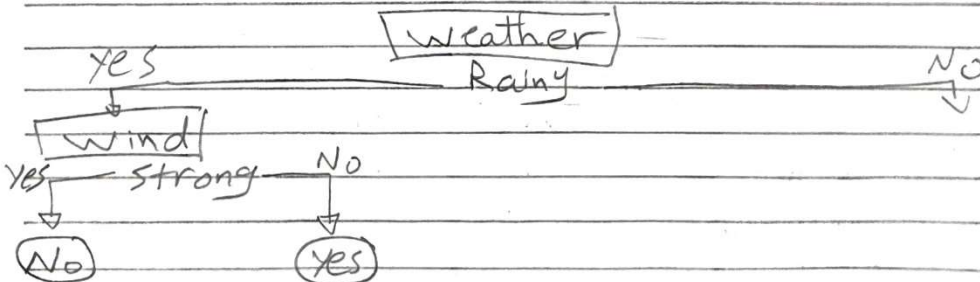 Weather
Yes Rainy No
Wind
Yes Strong No
No Yes